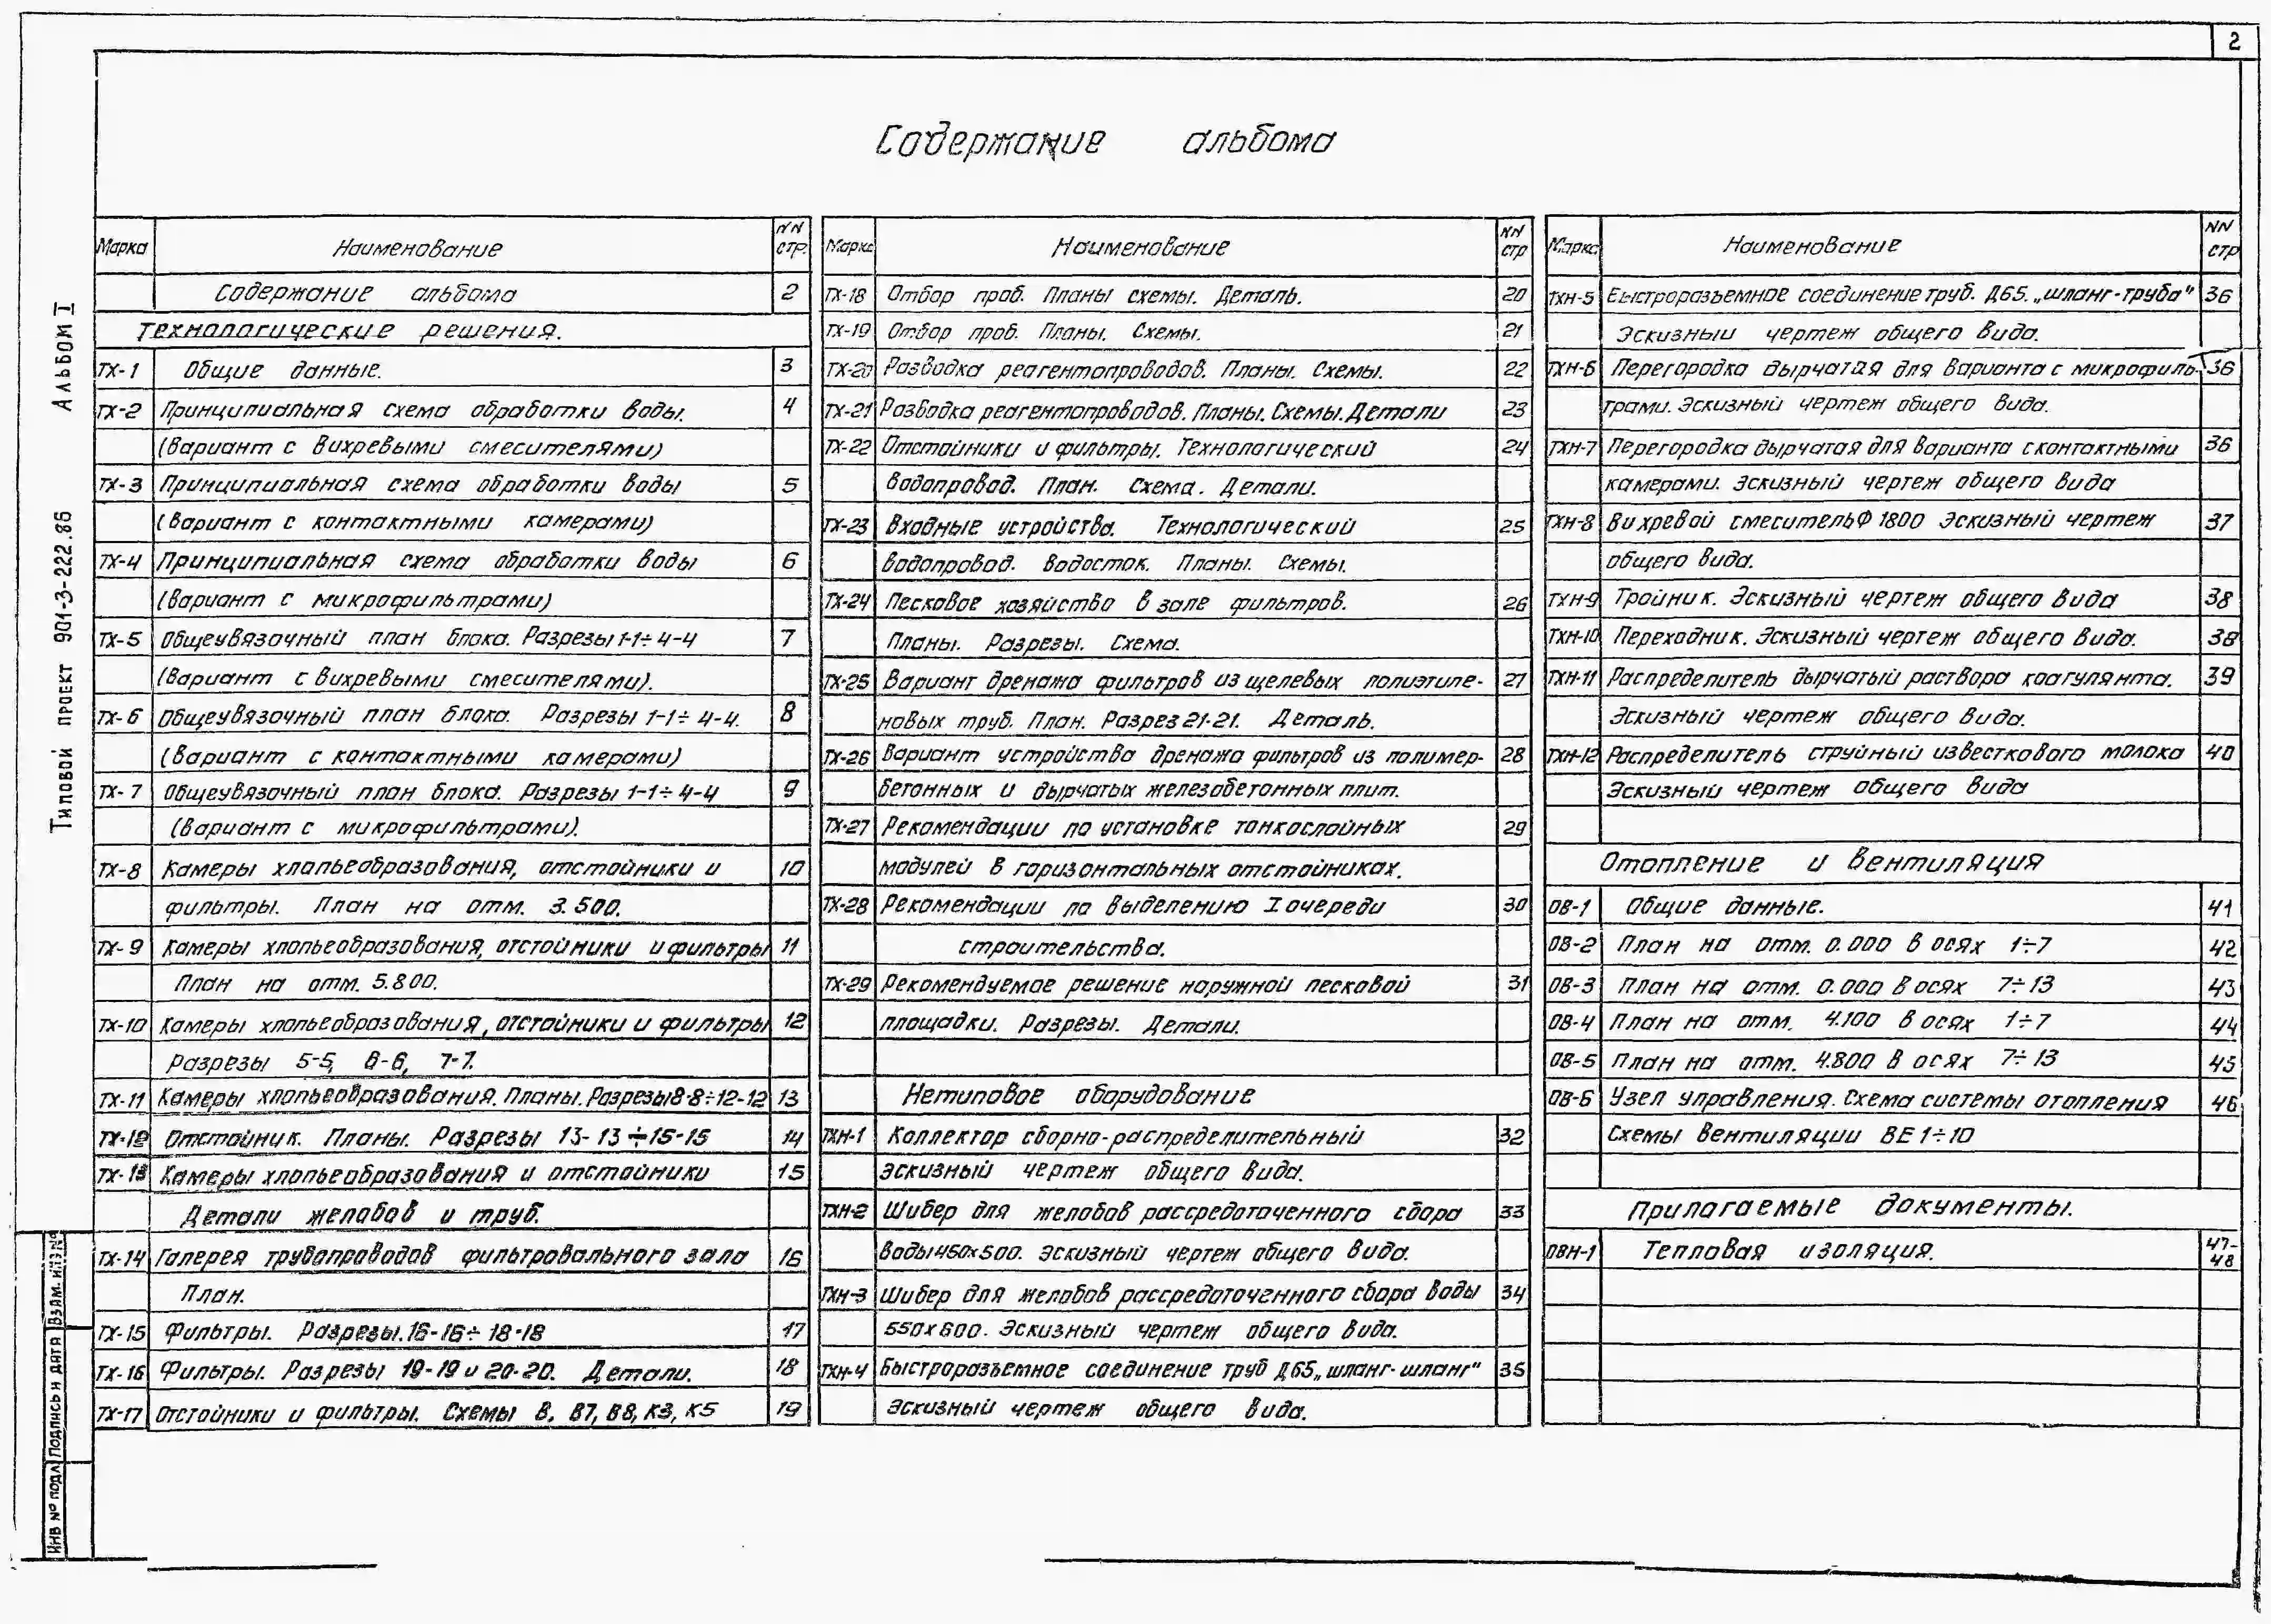 2
Содержание альбома
Альбом I
Типовой проект 901-3-222.86
Марка Наименование NN стр.
Содержание альбома 2
Технологические решения.
ТХ-1 Общие данные. 3
ТХ-2 Принципиальная схема обработки воды. 4
(вариант с вихревыми смесителями)
ТХ-3 Принципиальная схема обработки воды 5
(вариант с контактными камерами)
ТХ-4 Принципиальная схема обработки воды 6
(вариант с микрофильтрами)
ТХ-5 Общеувязочный план блока. Разрезы 1-1÷4-4 7
(вариант с вихревыми смесителями).
ТХ-6 Общеувязочный план блока. Разрезы 1-1÷4-4. 8
(вариант с контактными камерами)
ТХ-7 Общеувязочный план блока. Разрезы 1-1÷4-4 9
(вариант с микрофильтрами).
ТХ-8 Камеры хлопьеобразования, отстойники и 10
фильтры. План на отм. 3.500.
ТХ-9 Камеры хлопьеобразования, отстойники и фильтры 11
План на отм. 5.800.
ТХ-10 Камеры хлопьеобразования, отстойники и фильтры 12
Разрезы 5-5, 6-6, 7-7.
ТХ-11 Камеры хлопьеобразования. Планы. Разрезы 8-8÷12-12 13
ТХ-12 Отстойник. Планы. Разрезы 13-13÷15-15 14
ТХ-13 Камеры хлопьеобразования и отстойники 15
Детали желобов и труб.
ТХ-14 Галерея трубопроводов фильтровального зала 16
План.
ТХ-15 Фильтры. Разрезы. 16-16÷18-18 17
ТХ-16 Фильтры. Разрезы 19-19 и 20-20. Детали. 18
ТХ-17 Отстойники и фильтры. Схемы В, В7, В8, К3, К5 19
Марка Наименование NN стр
ТХ-18 Отбор проб. Планы схемы. Деталь. 20
ТХ-19 Отбор проб. Планы. Схемы. 21
ТХ-20 Разводка реагентопроводов. Планы. Схемы. 22
ТХ-21 Разводка реагентопроводов. Планы. Схемы. Детали 23
ТХ-22 Отстойники и фильтры. Технологический 24
водопровод. План. Схема. Детали.
ТХ-23 Входные устройства. Технологический 25
водопровод. Водосток. Планы. Схемы.
ТХ-24 Песковое хозяйство в зале фильтров. 26
Планы. Разрезы. Схема.
ТХ-25 Вариант дренажа фильтров из щелевых полиэтиле- 27
новых труб. План. Разрез 21-21. Деталь.
ТХ-26 Вариант устройства дренажа фильтров из полимер- 28
бетонных и дырчатых железобетонных плит.
ТХ-27 Рекомендации по установке тонкослойных 29
модулей в горизонтальных отстойниках.
ТХ-28 Рекомендации по выделению I очереди 30
строительства.
ТХ-29 Рекомендуемое решение наружной песковой 31
площадки. Разрезы. Детали.
Нетиповое оборудование
ТХН-1 Коллектор сборно-распределительный 32
эскизный чертеж общего вида.
ТХН-2 Шибер для желобов рассредоточенного сбора 33
воды 450х500. Эскизный чертеж общего вида.
ТХН-3 Шибер для желобов рассредоточенного сбора воды 34
550х600. Эскизный чертеж общего вида.
ТХН-4 Быстроразъемное соединение труб Д65 „шланг-шланг" 35
Эскизный чертеж общего вида.
Марка Наименование NN стр
ТХН-5 Быстроразъемное соединение труб. Д65. „шланг-труба" 36
Эскизный чертеж общего вида.
ТХН-6 Перегородка дырчатая для варианта с микрофиль- 36
трами. Эскизный чертеж общего вида.
ТХН-7 Перегородка дырчатая для варианта с контактными 36
камерами. Эскизный чертеж общего вида
ТХН-8 Вихревой смеситель Ф 1800 Эскизный чертеж 37
общего вида.
ТХН-9 Тройник. Эскизный чертеж общего вида 38
ТХН-10 Переходник. Эскизный чертеж общего вида. 38
ТХН-11 Распределитель дырчатый раствора коагулянта. 39
Эскизный чертеж общего вида.
ТХН-12 Распределитель струйный известкового молока 40
Эскизный чертеж общего вида
Отопление и вентиляция
ОВ-1 Общие данные. 41
ОВ-2 План на отм. 0.000 в осях 1÷7 42
ОВ-3 План на отм. 0.000 в осях 7÷13 43
ОВ-4 План на отм. 4.100 в осях 1÷7 44
ОВ-5 План на отм. 4.800 в осях 7÷13 45
ОВ-6 Узел управления. Схема системы отопления 46
Схемы вентиляции ВЕ1÷10
Прилагаемые документы.
ОВН-1 Тепловая изоляция. 47-48
Инв № подл Подпись и дата Взам. инв №